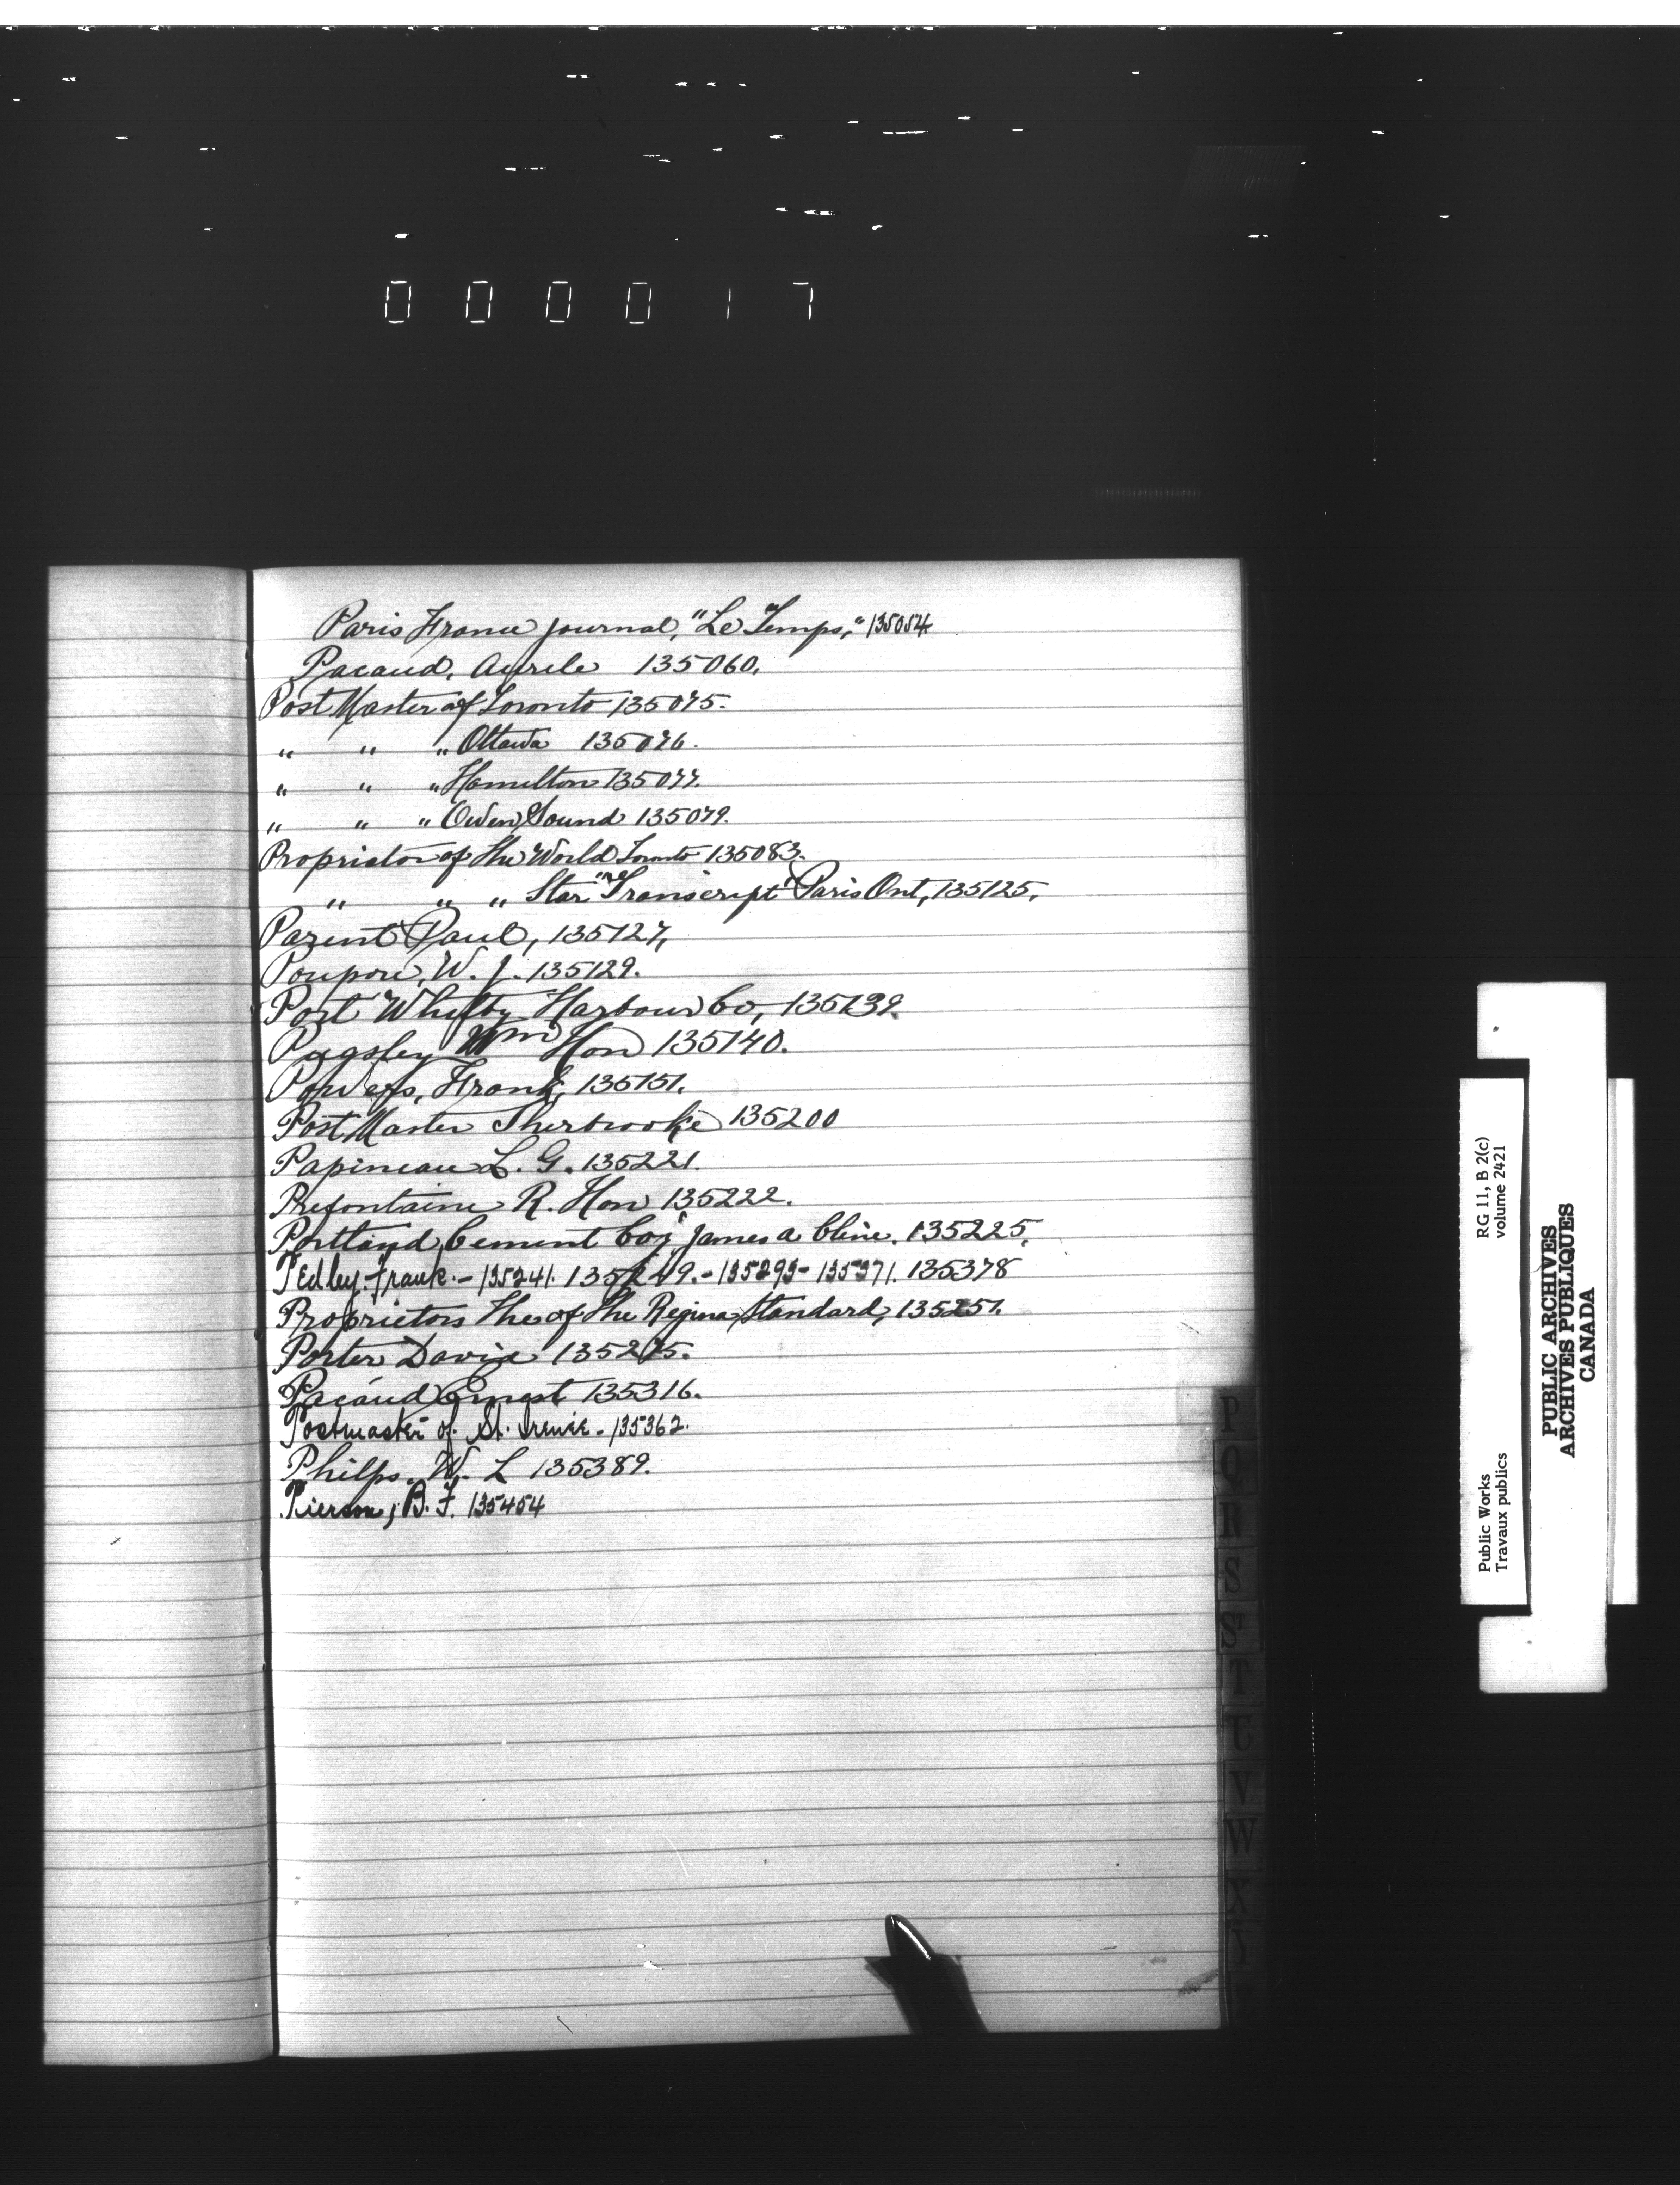 000017
Paris France journal, "Le Temps," 135054
Pacaud, Aurele 135060.
Post Master of Toronto 135075.
" " " Ottawa 135076.
" " " Hamilton 135077.
" " " Owen Sound 135079.
Proprietor of the World Toronto 135083.
" " " Star Transcript" Paris Ont, 135125.
Parent Paul, 135127,
Poupore, W. J. 135129.
Port Whitby Harbour Co, 135139.
Pugsley Wm Hon 135140.
Powers, Frank, 135151.
Post Master Sherbrooke 135200
Papineau L. G. 135221.
Prefontaine R. Hon 135222.
Portland Cement Coy James A Cline. 135225.
Pedley Frank.- 135241. 135249.- 135293- 135371. 135378
Proprietors The of the Regina Standard, 135251.
Porter David 135275.
Pacaud Ernest 135316.
Postmaster of St. Irenée - 135362.
Philps, W. L 135389.
Pierson, B. F. 135454
P
Q
R
S
S
T
U
V
W
X
Y
Z
Public Works
Travaux publics
RG 11, B 2(c)
volume 2421
PUBLIC ARCHIVES
ARCHIVES PUBLIQUES
CANADA